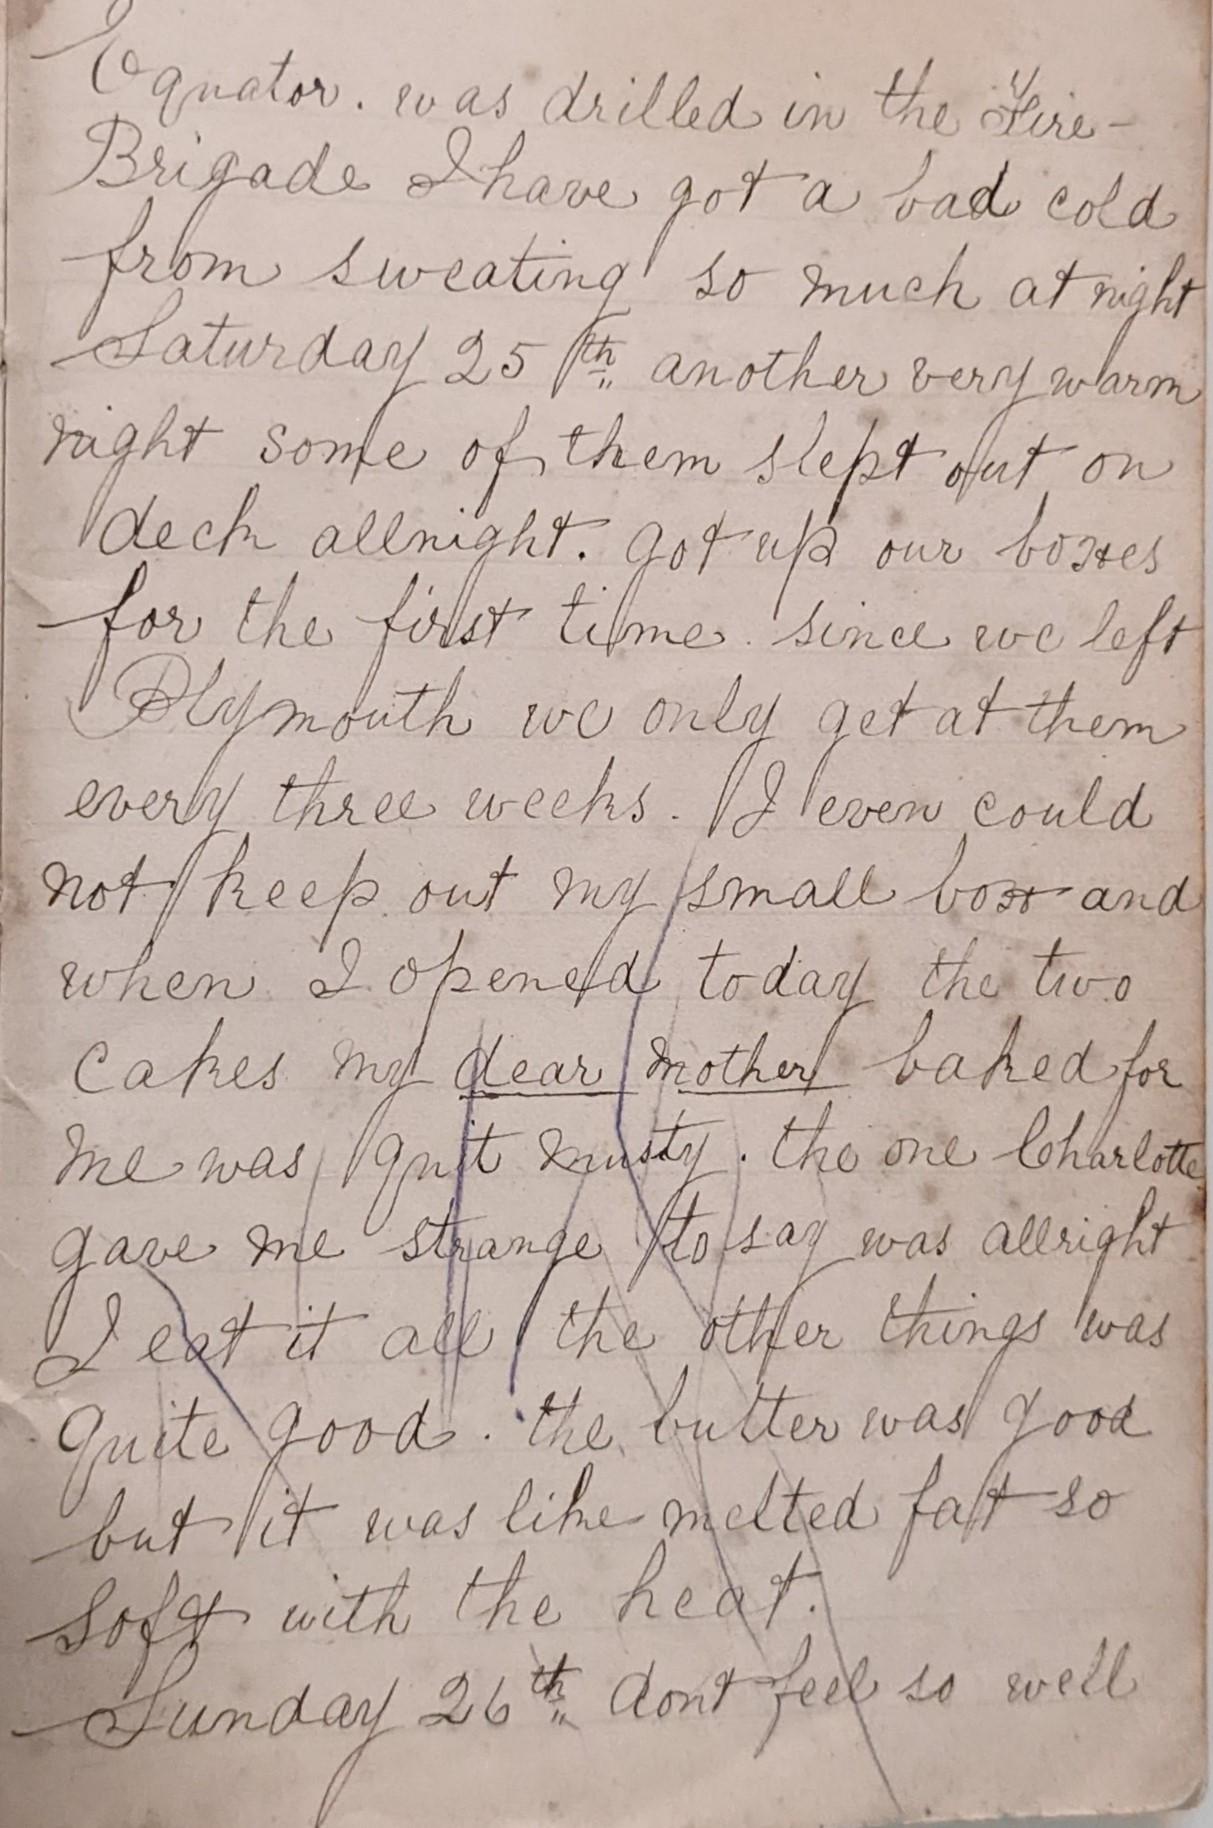 Equator. was drilled in the Fire-
Brigade I have got a bad cold
from sweating so much at night
Saturday 25th another very warm
night some of them slept out on
deck allnight. got up our boxes
for the first time. since we left
Plymouth we only get at them
every three weeks. I even could
not keep out my small box and
when I opened today the two
cakes my dear mother baked for
me was quit musty. the one Charlotte
gave me strange to say was allright
I eat it all the other things was
quite good. the butter was good
but it was like melted fat so
soft with the heat.
Sunday 26th dont feel so well